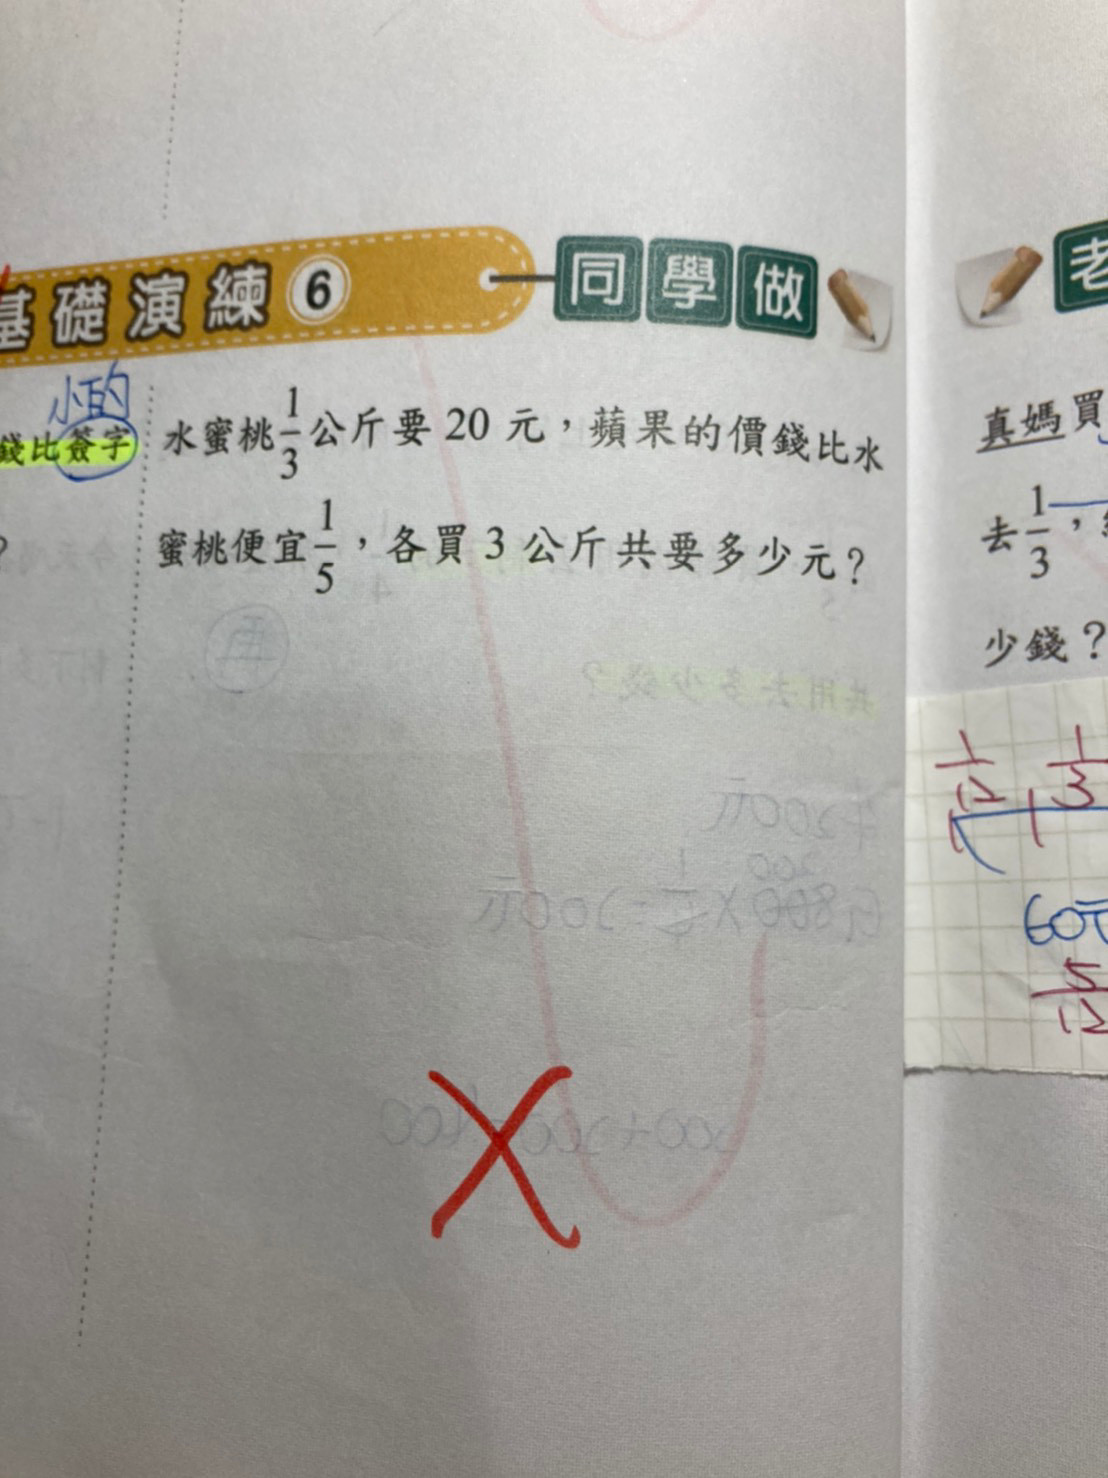 基礎演練 6 同學做 老
小的
錢比簽字
?
水蜜桃1/3公斤要 20 元，蘋果的價錢比水
蜜桃便宜1/5，各買 3 公斤共要多少元？
真媽買
去1/3，
少錢？
1/12 1/3
60元
5/12